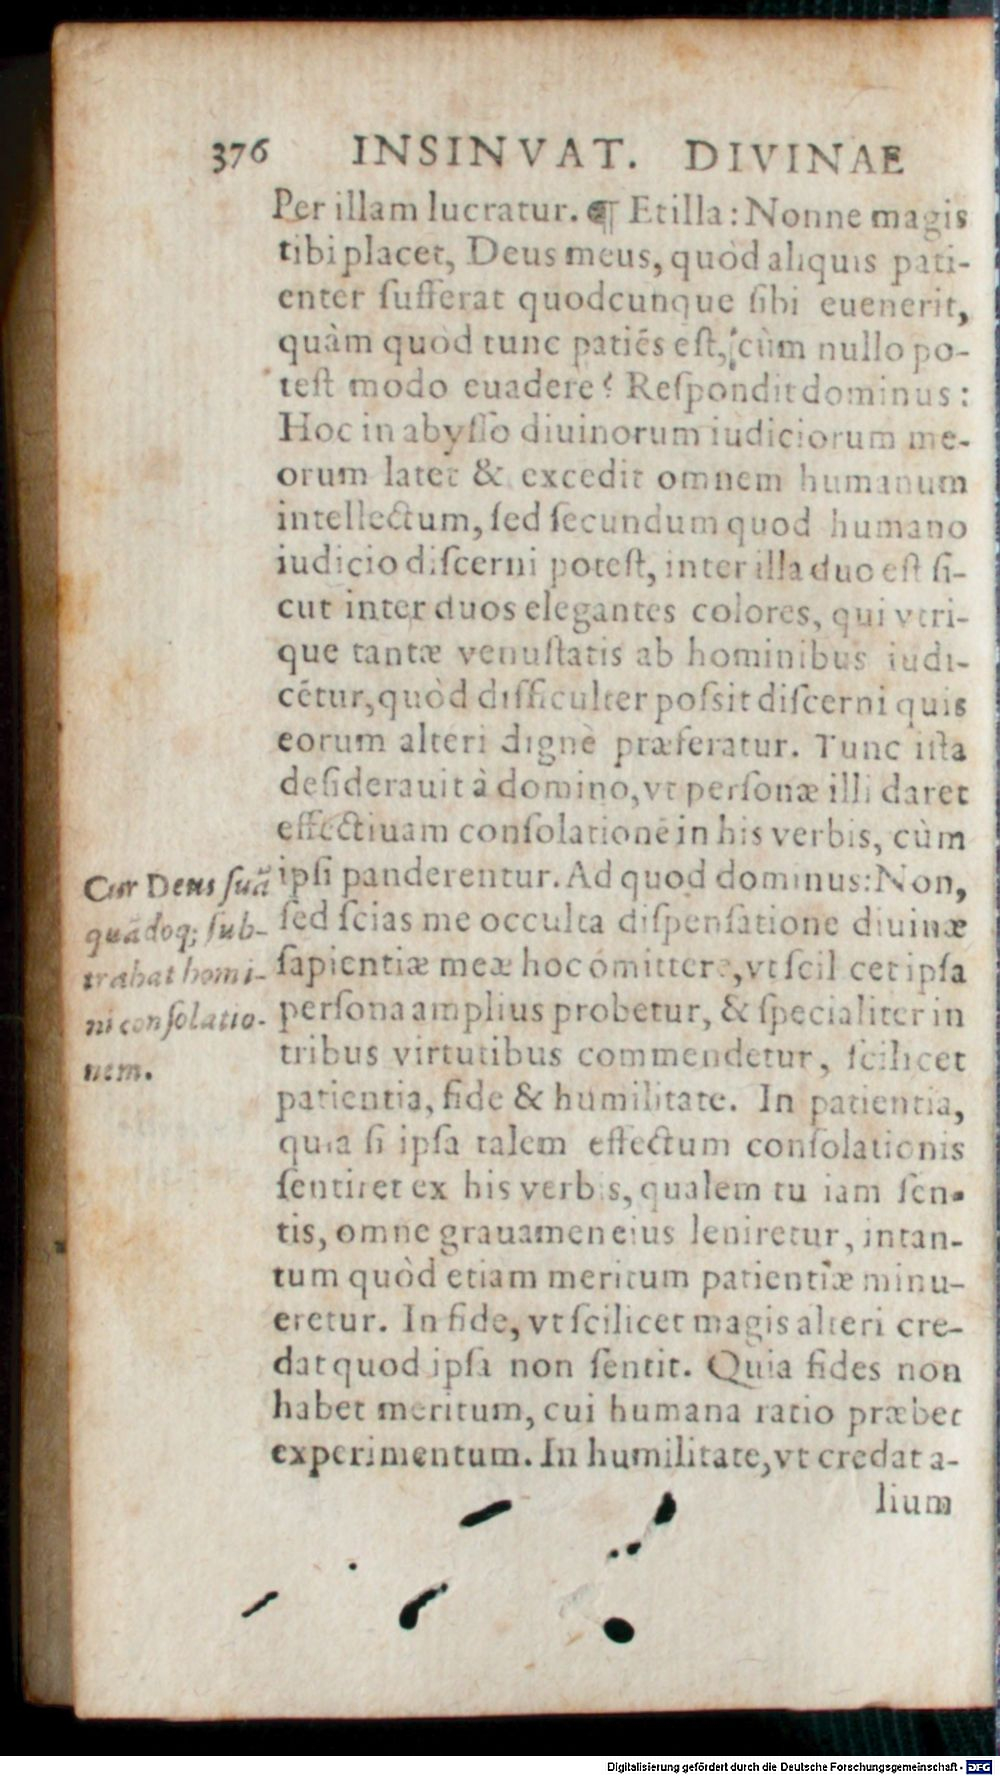 376 INSINVAT. DIVINAE
Per illam lucratur. ¶ Et illa: Nonne magis
tibi placet, Deus meus, quòd aliquis pati-
enter sufferat quodcunque sibi euenerit,
quàm quòd tunc patiẽs est, cùm nullo po-
test modo euadere? Respondit dominus:
Hoc in abysso diuinorum iudiciorum me-
orum latet & excedit omnem humanum
intellectum, sed secundum quod humano
iudicio discerni potest, inter illa duo est si-
cut inter duos elegantes colores, qui vtri-
que tantæ venustatis ab hominibus iudi-
cẽtur, quòd difficulter possit discerni quis
eorum alteri dignè præferatur. Tunc ista
desiderauit à domino, vt personæ illi daret
effectiuam consolationẽ in his verbis, cùm
ipsi panderentur. Ad quod dominus: Non,
sed scias me occulta dispensatione diuinæ
sapientiæ meæ hoc omittere, vt scilicet ipsa
persona amplius probetur, & specialiter in
tribus virtutibus commendetur, scilicet
patientia, fide & humilitate. In patientia,
quia si ipsa talem effectum consolationis
sentiret ex his verbis, qualem tu iam sen-
tis, omne grauamen eius leniretur, intan-
tum quòd etiam meritum patientiæ minu-
eretur. In fide, vt scilicet magis alteri cre-
dat quod ipsa non sentit. Quia fides non
habet meritum, cui humana ratio præbet
experimentum. In humilitate, vt credat a-
lium
Cur Deus suã
quãdoq; sub-
trahat homi-
ni consolatio-
nem.
Digitalisierung gefördert durch die Deutsche Forschungsgemeinschaft - DFG